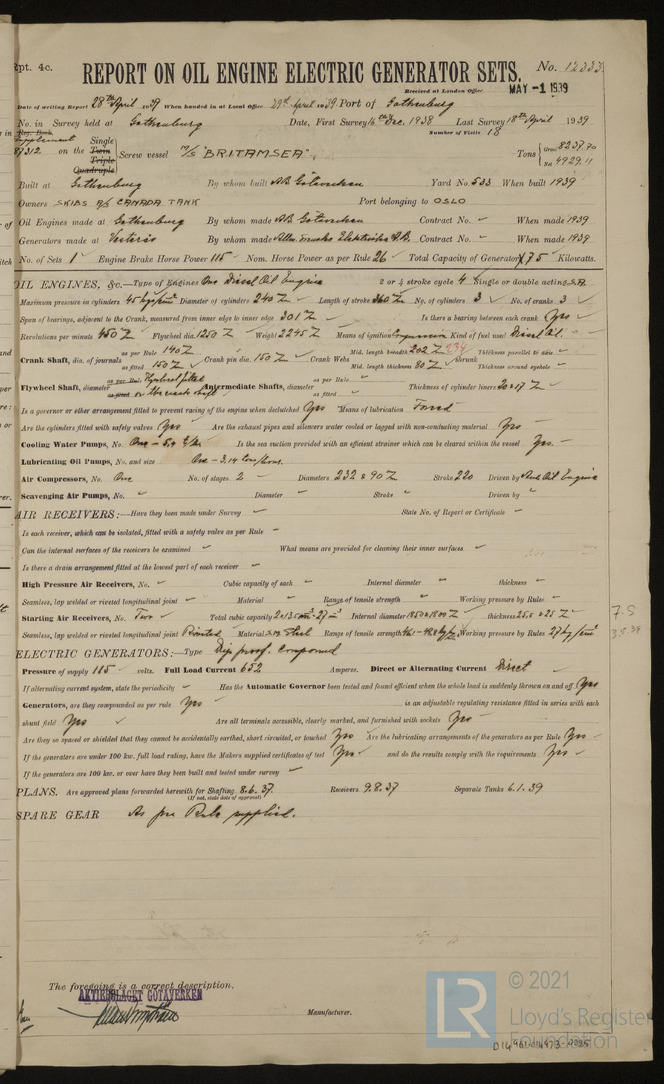 Rpt. 4c. REPORT ON OIL ENGINE ELECTRIC GENERATOR SETS. No. 12333
Received at London Office MAY -1 1939
Date of writing Report 28th April 1939 When handed in at Local Office 29th April 1939 Port of Gothenburg
No. in Survey held at Gothenburg Date, First Survey 16th Dec. 1938 Last Survey 18th April 1939
Reg. Book. Number of Visits 18
Supplement Single
87312 on the Twin Triple Quadruple Screw vessel M/S "BRITAMSEA" Tons Gross 8237.70 Net 4929.11
Built at Gothenburg By whom built A.B. Götaverken Yard No. 533 When built 1939
Owners SKIBS A/S CANADA TANK Port belonging to OSLO
Oil Engines made at Gothenburg By whom made A.B. Götaverken Contract No. " When made 1939
Generators made at Vesterås By whom made Contract No. " When made 1939
No. of Sets 1 Engine Brake Horse Power 115 Nom. Horse Power as per Rule 26 Total Capacity of Generators 75 Kilowatts.
OIL ENGINES, &c.—Type of Engines One Diesel Oil Engine 2 or 4 stroke cycle 4 Single or double acting S.A.
Maximum pressure in cylinders 45 kg/cm² Diameter of cylinders 240 Length of stroke 360 No. of cylinders 3 No. of cranks 3
Span of bearings, adjacent to the Crank, measured from inner edge to inner edge 301 Is there a bearing between each crank Yes
Revolutions per minute 450 Flywheel dia. 1250 Weight 2245 Means of ignition Compression Kind of fuel used Diesel Oil.
Crank Shaft, dia. of journals as per Rule 140 as fitted 150 Crank pin dia. 150 Crank Webs Mid. length breadth 202 Mid. length thickness 80 shrunk Thickness parallel to axis Thickness around eyehole
Flywheel Shaft, diameter as per Rule Flywheel fitted as fitted on the crank shaft Intermediate Shafts, diameter as per Rule " as fitted " Thickness of cylinder liners 20 & 17
Is a governor or other arrangement fitted to prevent racing of the engine when declutched Yes Means of lubrication Forced
Are the cylinders fitted with safety valves Yes Are the exhaust pipes and silencers water cooled or lagged with non-conducting material Yes
Cooling Water Pumps, No. One - Is the sea suction provided with an efficient strainer which can be cleared within the vessel Yes.
Lubricating Oil Pumps, No. and size One - 3.14 tons/hour.
Air Compressors, No. One No. of stages 2 Diameters 232 & 90 Stroke 220 Driven by Aux Oil Engine
Scavenging Air Pumps, No. " Diameter " Stroke " Driven by "
AIR RECEIVERS:—Have they been made under Survey State No. of Report or Certificate
Is each receiver, which can be isolated, fitted with a safety valve as per Rule
Can the internal surfaces of the receivers be examined What means are provided for cleaning their inner surfaces
Is there a drain arrangement fitted at the lowest part of each receiver
High Pressure Air Receivers, No. Cubic capacity of each " Internal diameter " thickness "
Seamless, lap welded or riveted longitudinal joint Material " Range of tensile strength Working pressure by Rules "
Starting Air Receivers, No. Two Total cubic capacity 2x13.5 m³ = 27 m³ Internal diameter 1850 & 1800 thickness 25.5 & 25
Seamless, lap welded or riveted longitudinal joint Riveted Material S.M. Steel Range of tensile strength Working pressure by Rules 27 kg/cm²
ELECTRIC GENERATORS:—Type Drip proof. Compound
Pressure of supply 115 volts. Full Load Current 652 Amperes. Direct or Alternating Current Direct
If alternating current system, state the periodicity Has the Automatic Governor been tested and found efficient when the whole load is suddenly thrown on and off Yes
Generators, are they compounded as per rule Yes is an adjustable regulating resistance fitted in series with each
shunt field Yes Are all terminals accessible, clearly marked, and furnished with sockets Yes
Are they so spaced or shielded that they cannot be accidentally earthed, short circuited, or touched Yes Are the lubricating arrangements of the generators as per Rule Yes
If the generators are under 100 kw. full load rating, have the Makers supplied certificates of test Yes and do the results comply with the requirements Yes
If the generators are 100 kw. or over have they been built and tested under survey
PLANS. Are approved plans forwarded herewith for Shafting 8.6.37. Receivers 9.8.37 Separate Tanks 6.1.39
(If not, state date of approval)
SPARE GEAR As per Rule supplied.
7.S
3.5.39
The foregoing is a correct description,
AKTIEBOLAGET GÖTAVERKEN
Manufacturer.
LR © 2021
Lloyd's Register
Foundation